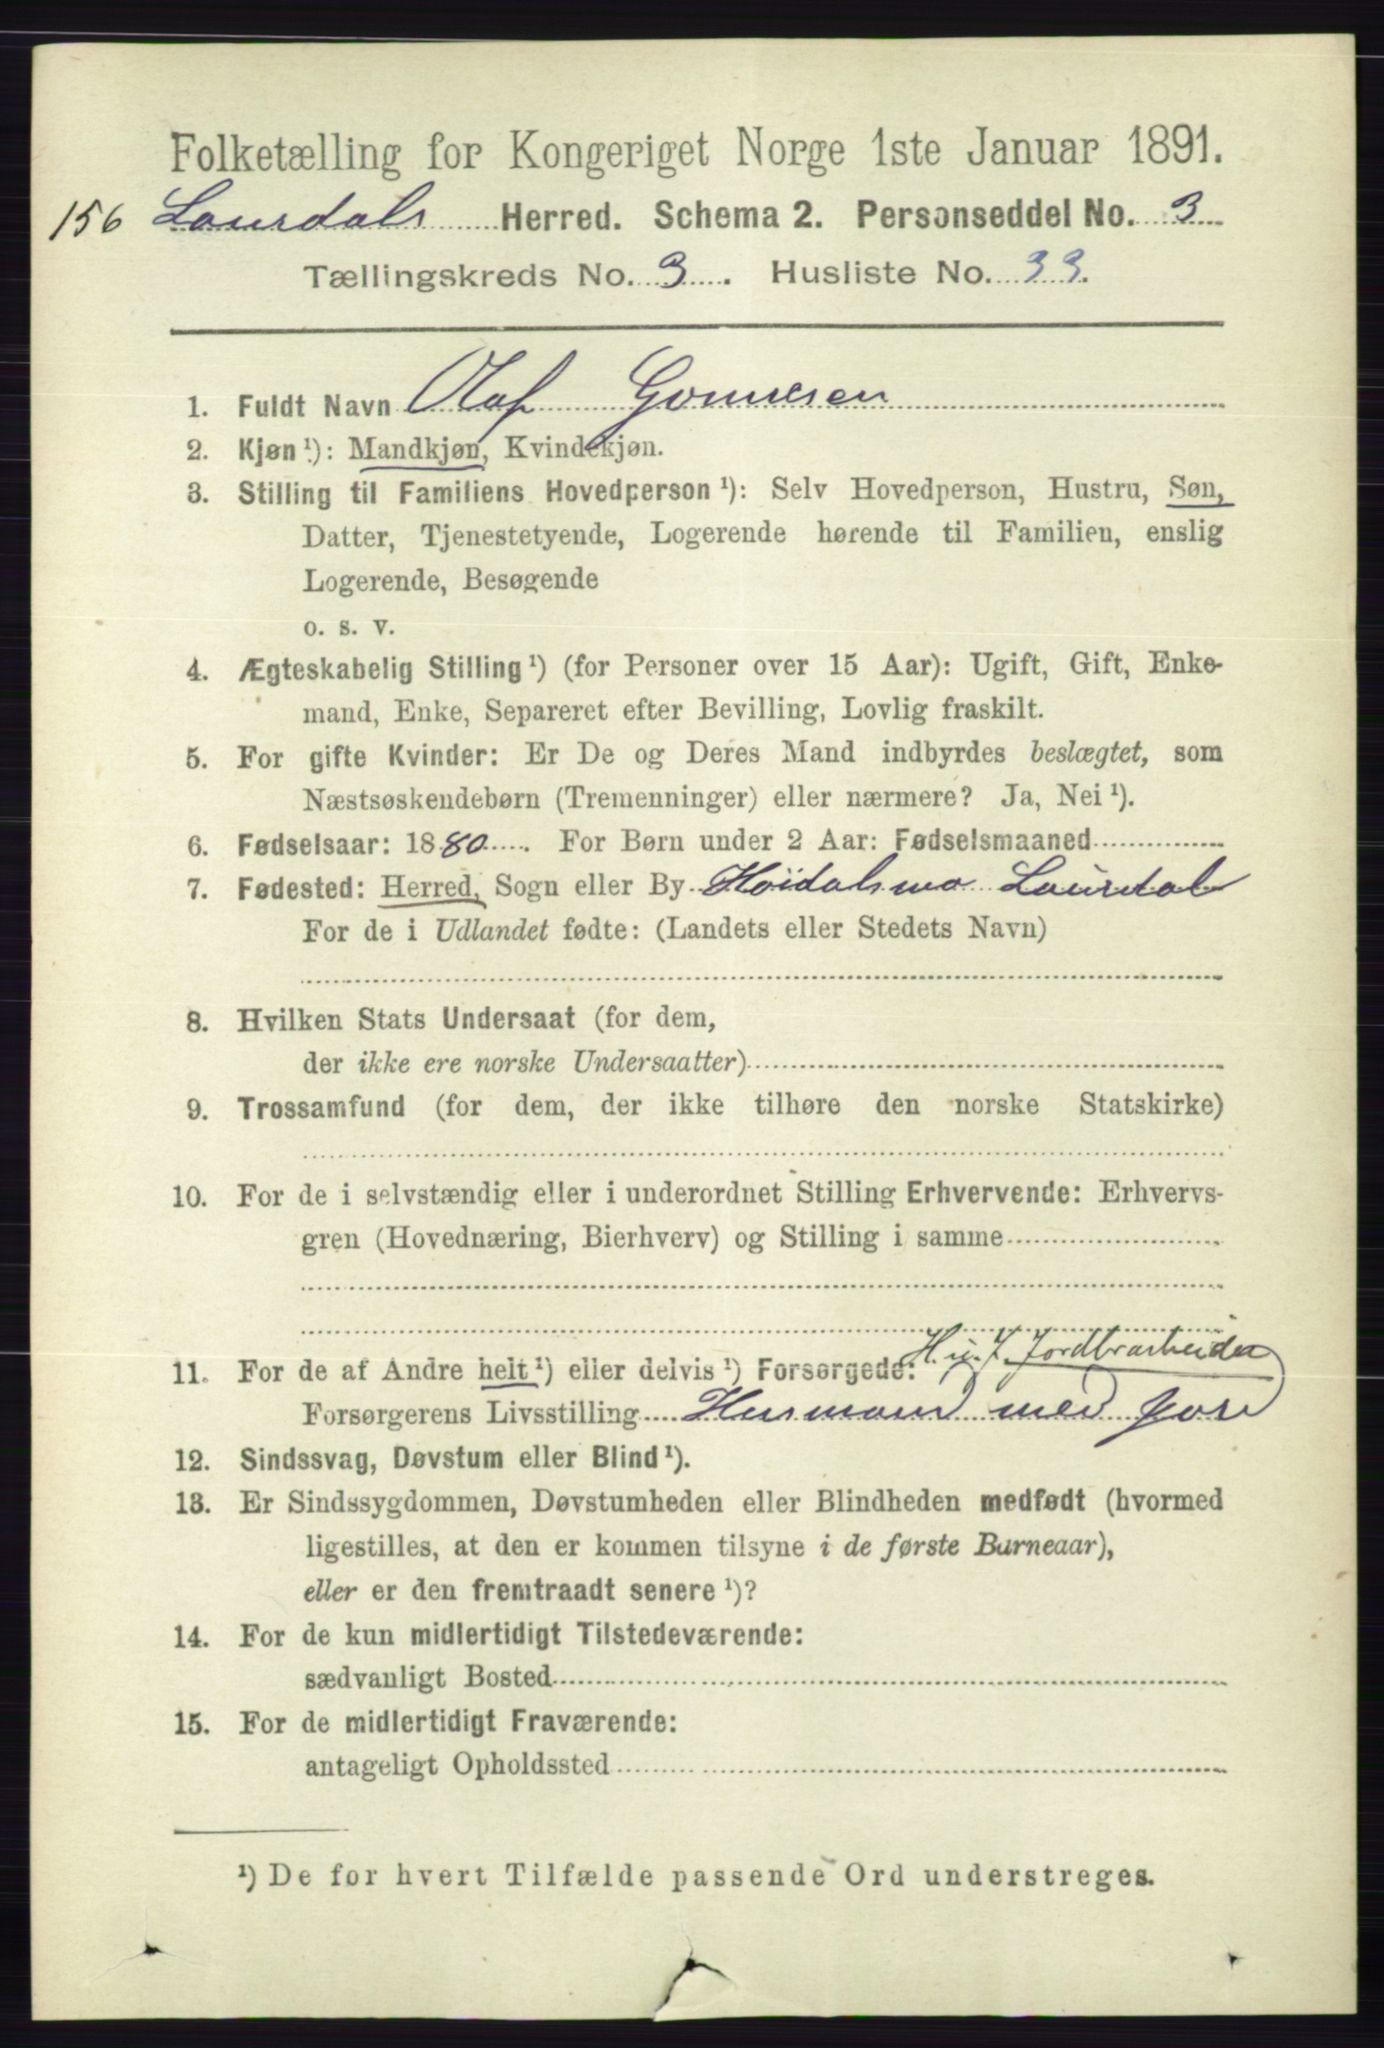 Folketælling for Kongeriget Norge 1ste Januar 1891.
156 Laurdals Herred. Schema 2. Personseddel No. 3
Tællingskreds No. 3. Husliste No. 33.
1. Fuldt Navn Olaf Gunnesen
2. Kjøn ¹): Mandkjøn, Kvindekjøn.
3. Stilling til Familiens Hovedperson ¹): Selv Hovedperson, Hustru, Søn,
Datter, Tjenestetyende, Logerende hørende til Familien, enslig
Logerende, Besøgende
o. s. v.
4. Ægteskabelig Stilling ¹) (for Personer over 15 Aar): Ugift, Gift, Enke-
mand, Enke, Separeret efter Bevilling, Lovlig fraskilt.
5. For gifte Kvinder: Er De og Deres Mand indbyrdes beslægtet, som
Næstsøskendebørn (Tremenninger) eller nærmere? Ja, Nei ¹).
6. Fødselsaar: 1880. For Børn under 2 Aar: Fødselsmaaned
7. Fødested: Herred, Sogn eller By Høidalsmo Laurdal
For de i Udlandet fødte: (Landets eller Stedets Navn)
8. Hvilken Stats Undersaat (for dem,
der ikke ere norske Undersaatter)
9. Trossamfund (for dem, der ikke tilhøre den norske Statskirke)
10. For de i selvstændig eller i underordnet Stilling Erhvervende: Erhvervs-
gren (Hovednæring, Bierhverv) og Stilling i samme
H. y. J. Jordbrarbeider
11. For de af Andre helt ¹) eller delvis ¹) Forsørgede:
Forsørgerens Livsstilling Husmand med Jord
12. Sindssvag, Døvstum eller Blind ¹).
13. Er Sindssygdommen, Døvstumheden eller Blindheden medfødt (hvormed
ligestilles, at den er kommen tilsyne i de første Barneaar),
eller er den fremtraadt senere ¹)?
14. For de kun midlertidigt Tilstedeværende:
sædvanligt Bosted
15. For de midlertidigt Fraværende:
antageligt Opholdssted
¹) De for hvert Tilfælde passende Ord understreges.